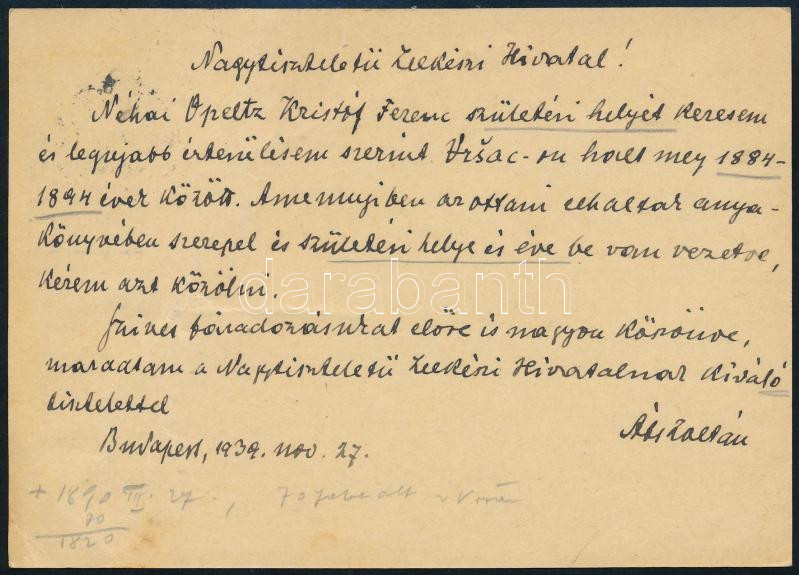 Nagytiszteletü Lelkészi Hivatal!
Néhai Opeltz Kristóf Ferenc születési helyét keresem
és legujabb értesülésem szerint Vršac-on halt meg 1884-
1894 évek között. Amennyiben az ottani elhaltak anya-
könyvében szerepel és születési helye és éve be van vezetve,
kérem azt közölni.
darabanth
Szives fáradozásukat előre is nagyon köszönve,
maradtam a Nagytiszteletü Lelkészi Hivatalnak kiváló
tisztelettel
Áts Zoltán
Budapest, 1939. nov. 27.
+ 1890 III. 27.,
70
1820